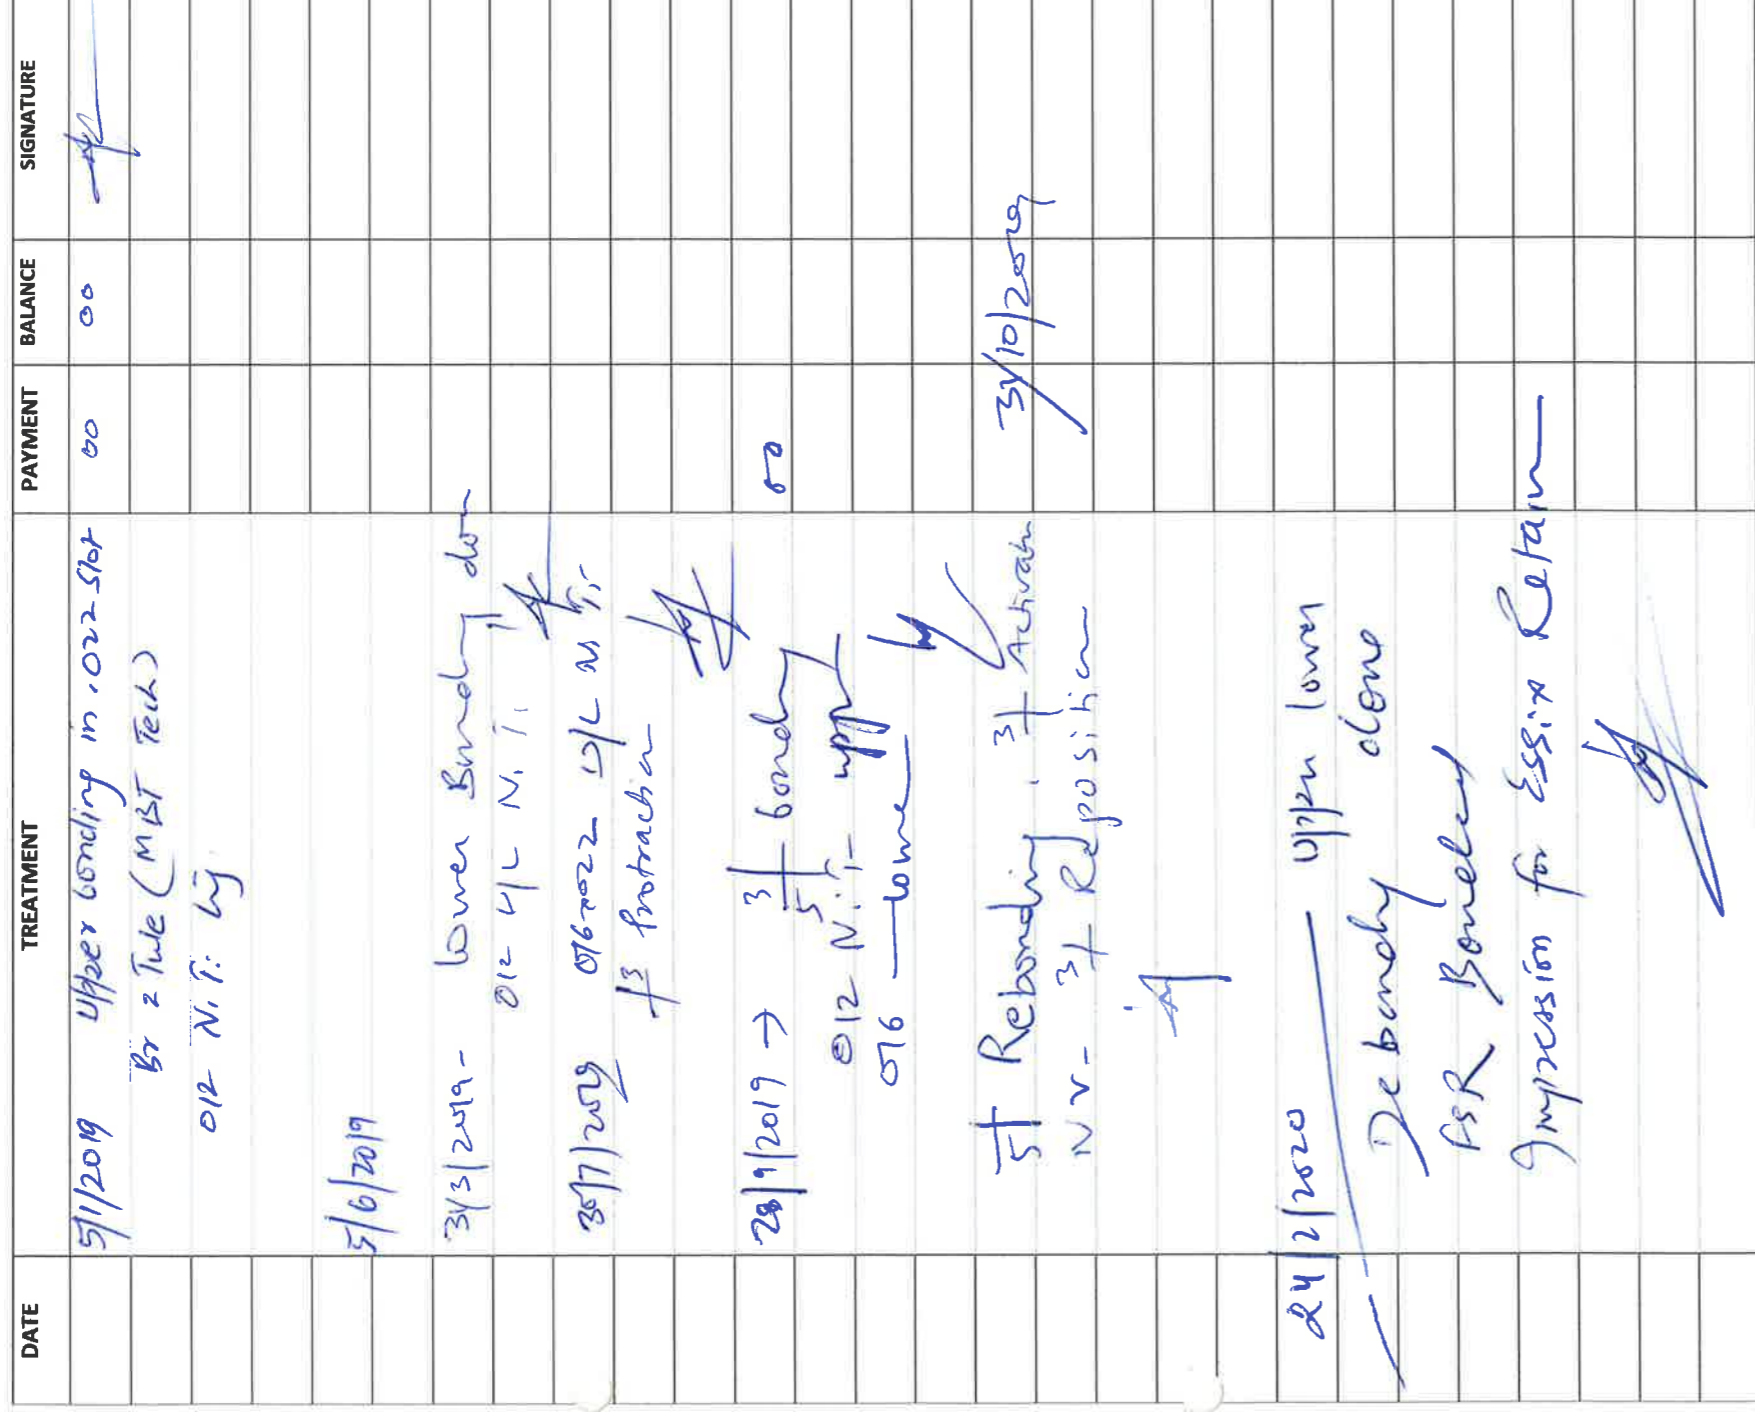 DATE TREATMENT PAYMENT BALANCE SIGNATURE
5/1/2019 Upper bonding in .022 slot 00 00
Br 2 Tube (MBT Tech)
012 N.T. Lig
5/6/2019
31/3/2019 - Lower Bonding don
012 U/L N.T.
30/7/2019 016x022 U/L N.T.
3 Protraction
28/9/2019 → 3 5 bonding 00
012 N.T. - upper
016 - Lower
5 Rebonding . 3 Activation 31/10/2029
N.V - 3 Reposition
24/2/2020 Upper lower
Debonding done
FSR Bonded
Impression for Essix Retain